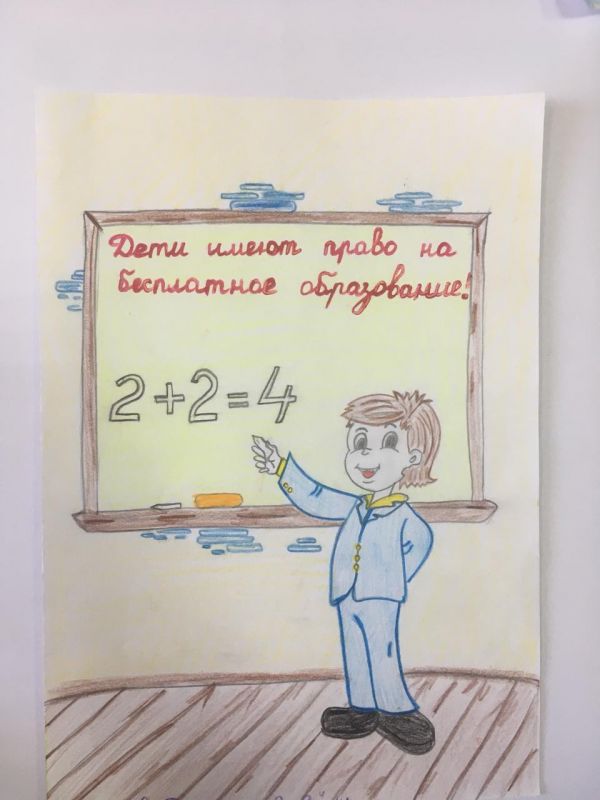 Дети имеют право на
бесплатное образование!
2+2=4